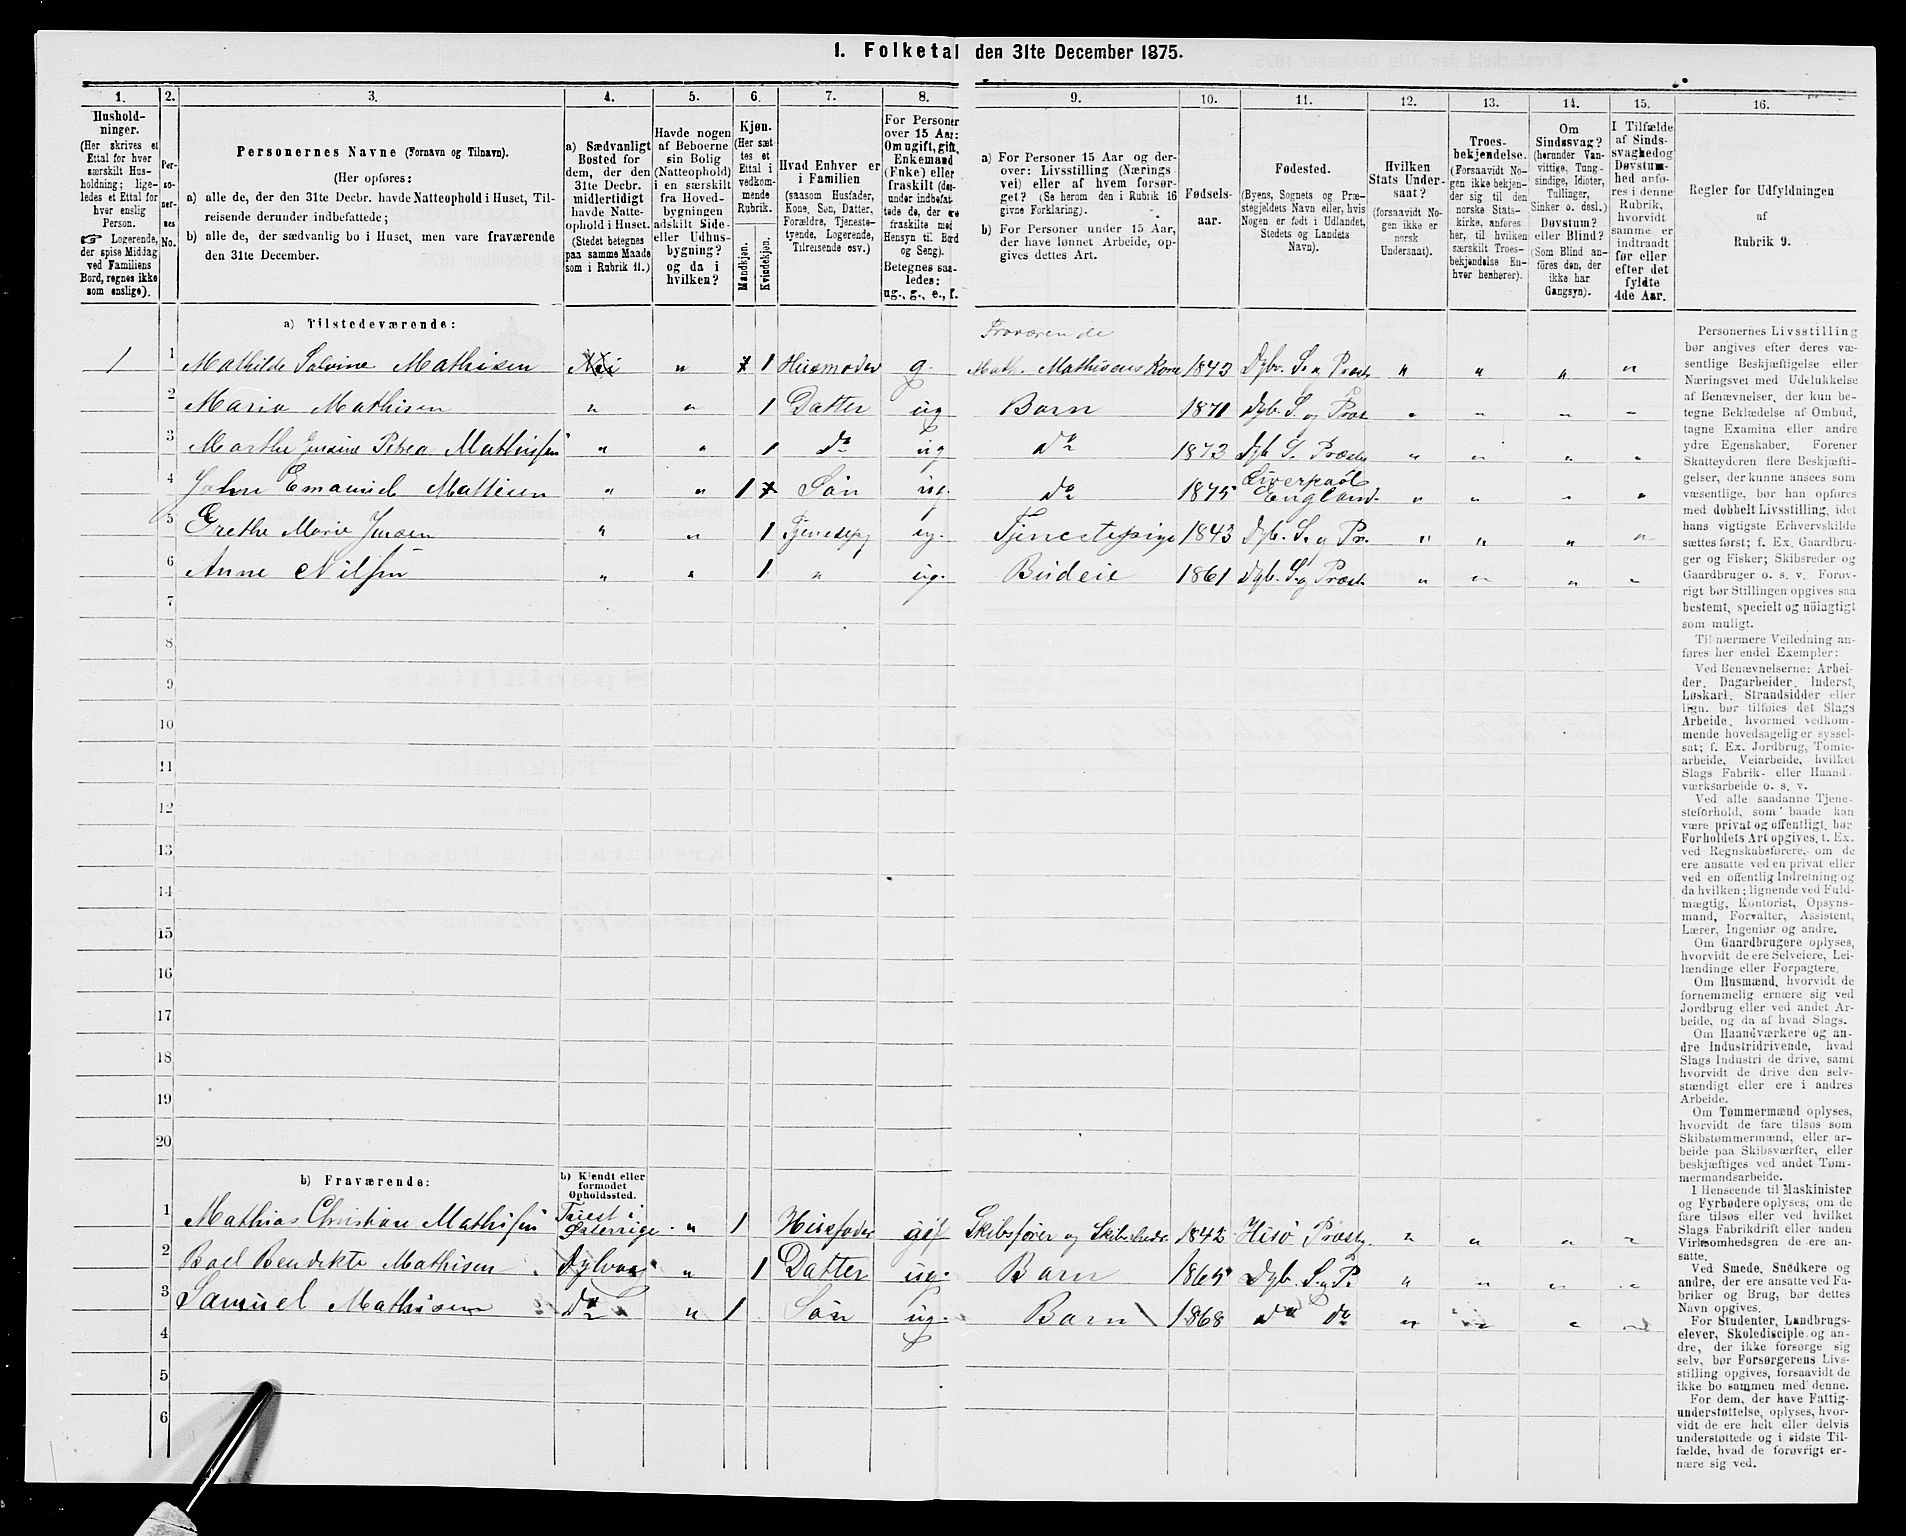 1. Folketal den 31te December 1875.
1.
2.
3.
4.
5.
6.
7.
8.
9.
10.
11.
12.
13.
14.
15.
16.
Hushold-
ninger.
(Her skrives et
Ettal for hver
særskilt Hus-
holdning; lige-
ledes et Ettal for
hver enslig
Person.
☞ Logerende,
der spise Middag
ved Familiens
Bord, regnes ikke
som enslige).
Per-
so-
ner-
nes
No.
Personernes Navne (Fornavn og Tilnavn).
(Her opføres:
a) alle de, der den 31te Decbr. havde Natteophold i Huset, Til-
reisende derunder indbefattede;
b) alle de, der sædvanlig bo i Huset, men vare fraværende
den 31te December.
a) Sædvanligt
Bosted for
dem, der den
31te Decbr.
midlertidigt
havde Natte-
ophold i Huset.
(Stedet betegnes
paa samme Maade
som i Rubrik 11.)
Havde nogen
af Beboerne
sin Bolig
(Natteophold)
i en særskilt
fra Hoved-
bygningen
adskilt Side-
eller Udhus-
bygning?
og da i
hvilken?
Kjøn.
(Her sæt-
tes et
Ettal i
vedkom-
mende
Rubrik.
Mandkjøn.
Kvindekjøn.
Hvad Enhver er
i Familien
(saasom Husfader,
Kone, Søn, Datter,
Forældre, Tjeneste-
tyende, Logerende,
Tilreisende osv.)
For Personer
over 15 Aar:
Om ugift, gift,
Enkemand
(Enke) eller
fraskilt (der-
under indbefat-
tede de, der ere
fraskilte med
Hensyn til Bord
og Seng).
Betegnes saa-
ledes:
ug., g., e., f.
a) For Personer 15 Aar og der-
over: Livsstilling (Nærings-
vei) eller af hvem forsør-
get? (Se herom den i Rubrik 16
givne Forklaring).
b) For Personer under 15 Aar,
der have lønnet Arbeide, op-
gives dettes Art.
Fødsels-
aar.
Fødested.
(Byens, Sognets og Præ-
stegjeldets Navn eller, hvis
Nogen er født i Udlandet,
Stedets og Landets
Navn).
Hvilken
Stats Under-
saat?
(forsaavidt No-
gen ikke er
norsk
Undersaat).
Troes-
bekjendelse.
(Forsaavidt No-
gen ikke bekjen-
der sig til den
norske Stats-
kirke, anføres
her, til hvilket
særskilt Troes-
bekjendelse En-
hver henhører).
Om
Sindssvag?
(herunder Van-
vittige, Tung-
sindige, Idioter,
Tullinger,
Sinker o. desl.)
Døvstum?
eller Blind?
(Som Blind an-
føres den, der
ikke har
Gangsyn).
I Tilfælde
af Sinds-
svaghed og
Døvstum-
hed anfø-
res i denne
Rubrik,
hvorvidt
samme er
indtraadt
før eller
efter det
fyldte
4de Aar.
Regler for Udfyldningen
af
Rubrik 9.
a) Tilstedeværende:
Fraværende
1 1 Mathilde Salvine Mathisen " 1 Husmoder g. Math. Mathisens Kone 1843 Dyb. S. og Præst. " " " "
2 Maria Mathisen " " 1 Datter ug Barn 1871 Dyb. S. og Præst " " " "
3 Marthe Jensine Petrea Mathissen " " 1 do ug do 1873 Dyb S. Præst. " " " "
4 John Emanuel Mathisen " " 1 Søn ug. do 1875 Liverpool
England " " " "
5 Grethe Marie Jensen " " 1 ug. Tjenestepige 1843 Dyb. S. og Pr. " " " "
6 Anne Nilsen " " 1 " ug. Budeie 1861 Dyb. S. og Præst. " " " "
7
8
9
10
11
12
13
14
15
16
17
18
19
20
b) Fraværende:
b) Kjendt eller
formodet
Opholdssted.
1 Mathias Christian Mathisen Triest i
Østerrige " 1 Husfader gif Skibsfører og 1842 Hisø Præstg. " " " "
2 Boel Bendikte Mathisen " 1 Datter ug. Barn 1865 Dyb. S. og P. " " " "
3 Samuel Mathisen do " 1 Søn ug. Barn 1868 do do " " " "
4
5
6
Personernes Livsstilling
bør angives efter deres væ-
sentlige Beskjæftigelse eller
Næringsvei med Udelukkelse
af Benævnelser, der kun be-
tegne Beklædelse af Ombud,
tagne Examina eller andre
ydre Egenskaber. Forener
Skatteyderen flere Beskjæfti-
gelser, der kunne ansees som
væsentlige, bør han opføres
med dobbelt Livsstilling, idet
hans vigtigste Erhvervskilde
sættes først; f. Ex. Gaardbru-
ger og Fisker; Skibsreder og
Gaardbruger o. s. v. Forøv-
rigt bør Stillingen opgives saa
bestemt, specielt og nöiagtigt
som muligt.
Til nærmere Veiledning an-
føres her endel Exempler:
Ved Benævnelserne: Arbei-
der, Dagarbeider, Inderst,
Løskarl, Strandsidder eller
lign. bør tilføies det Slags
Arbeide, hvormed vedkom-
mende hovedsagelig er syssel-
sat; f. Ex. Jordbrug, Tomte-
arbeide, Veiarbeide, hvilket
Slags Fabrik- eller Haand-
værksarbeide o. s. v.
Ved alle saadanne Tjene-
steforhold, som baade kan
være privat og offentligt, bør
Forholdets Art opgives, t. Ex.
ved Regnskabsførere, om de
ere ansatte ved en privat eller
ved en offentlig Indretning og
da hvilken; lignende ved Fuld-
mægtig, Kontorist, Opsyns-
mand, Forvalter, Assistent,
Lærer, Ingeniør og andre.
Om Gaardbrugere oplyses,
hvorvidt de ere Selveiere, Lei-
lændinge eller Forpagtere.
Om Husmænd, hvorvidt de
fornemmelig ernære sig ved
Jordbrug eller ved andet Ar-
beide, og da af hvad Slags.
Om Haandværkere og an-
dre Industridrivende, hvad
Slags Industri de drive, samt
hvorvidt de drive den selv-
stændigt eller ere i andres
Arbeide.
Om Tømmermænd oplyses,
hvorvidt de fare tilsøs som
Skibstømmermænd, eller ar-
beide paa Skibsværfter, eller
beskjæftiges ved andet Tøm-
mermandsarbeide.
I Henseende til Maskinister
og Fyrbødere oplyses, om de
fare tilsøs eller ved hvilket
Slags Fabrikdrift eller anden
Virksomhedsgren de ere an-
satte.
Ved Smede, Snedkere og
andre, der ere ansatte ved Fa-
briker og Brug, bør dettes
Navn opgives.
For Studenter, Landbrugs-
elever, Skoledisciple og an-
dre, der ikke forsørge sig
selv, bør Forsørgerens Livs-
stilling opgives, forsaavidt de
ikke bo sammen med denne.
For dem, der have Fattig-
understøttelse, oplyses, hvor-
vidt de ere helt eller delvis
understøttede og i sidste Til-
fælde, hvad de forøvrigt er-
nære sig ved.